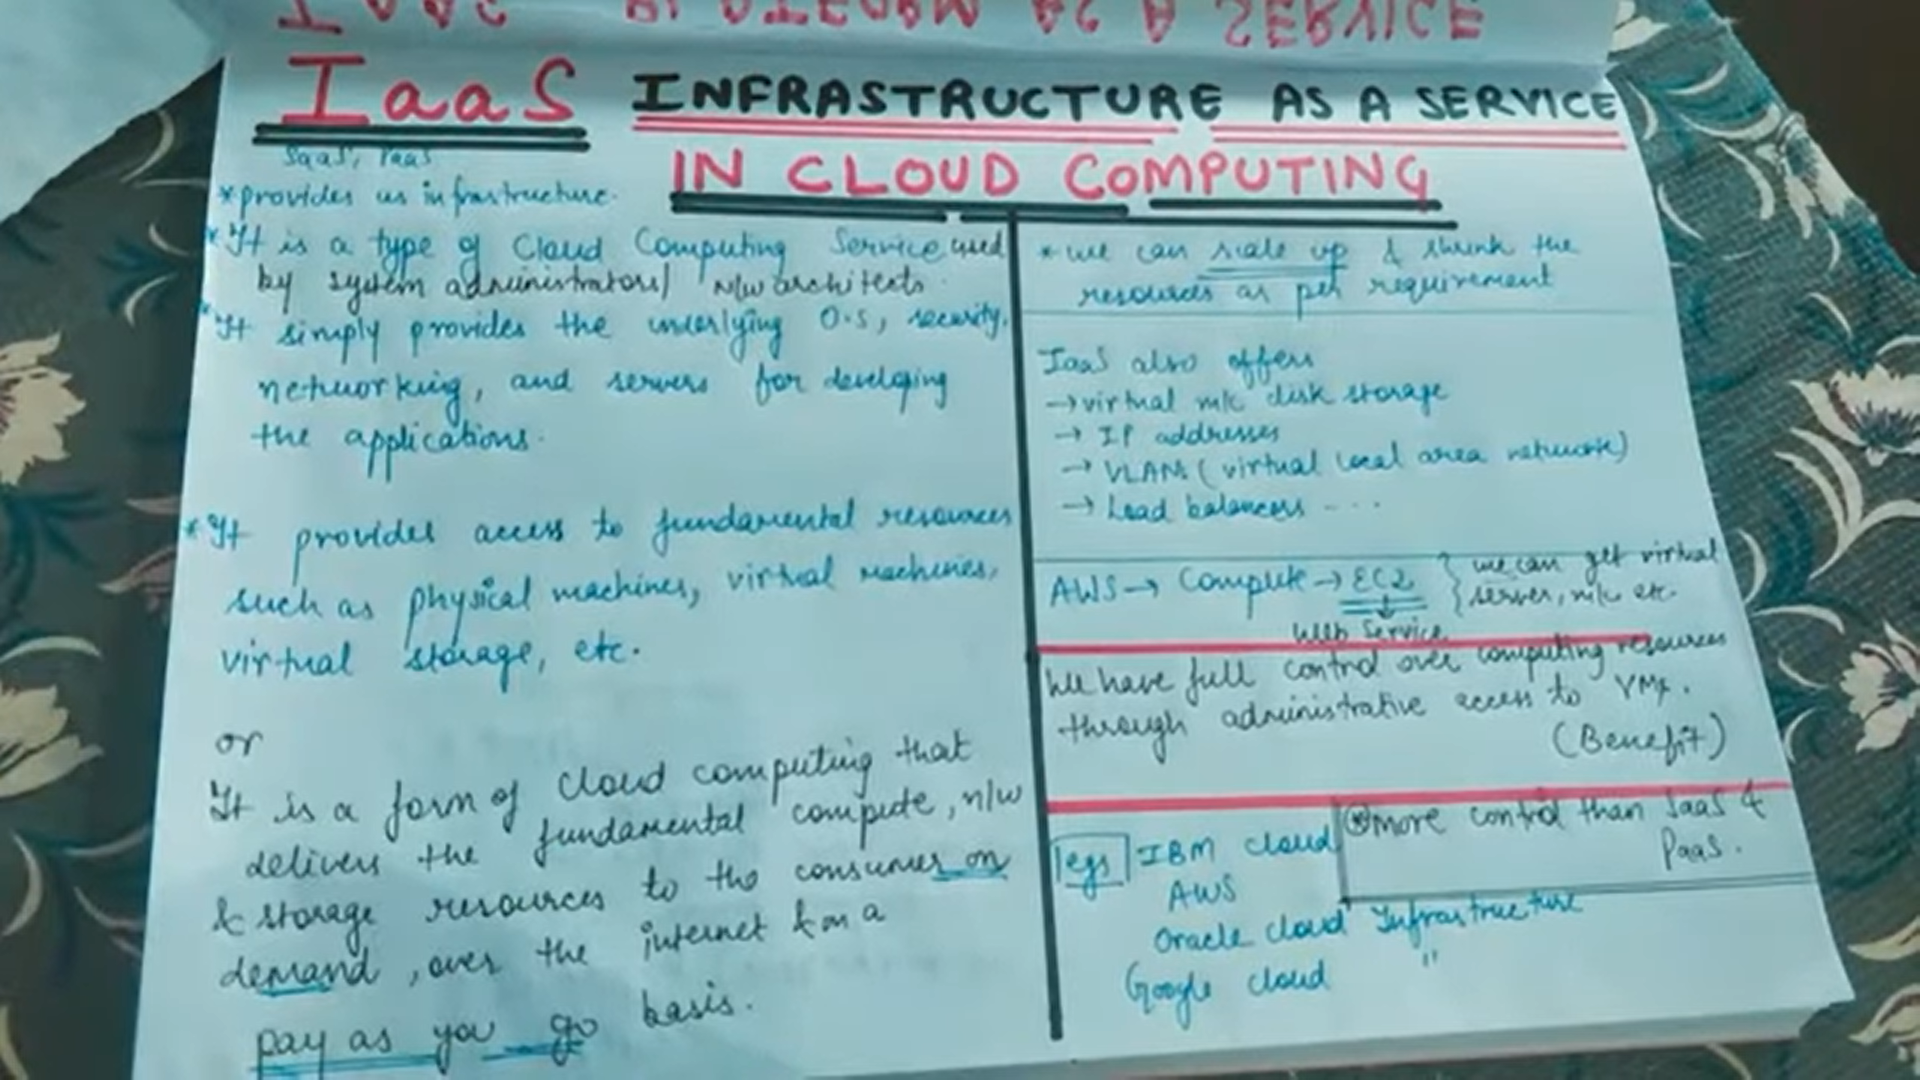 IaaS INFRASTRUCTURE AS A SERVICE
IN CLOUD COMPUTING
SaaS, PaaS
*provides us infrastructure.
*It is a type of Cloud Computing Service used
by system administrators/ n/w architects.
*It simply provides the underlying O.S, security,
networking, and servers for developing
the applications.
*It provides access to fundamental resources
such as physical machines, virtual machines,
virtual storage, etc.
or
It is a form of cloud computing that
delivers the fundamental compute, n/w
& storage resources to the consumers on
demand, over the internet & on a
pay as you go basis.
*we can scale up & shrink the
resources as per requirement
IaaS also offers
→virtual m/c disk storage
→ IP addresses
→ VLANs (virtual local area network)
→ Load balancers - - -
AWS→ Compute → EC2 } we can get virtual
server, m/c etc.
Web Service
We have full control over computing resources
through administrative access to VMs.
(Benefit)
*more control than SaaS &
PaaS.
egs IBM cloud
AWS
Oracle cloud Infrastructure
Google cloud "